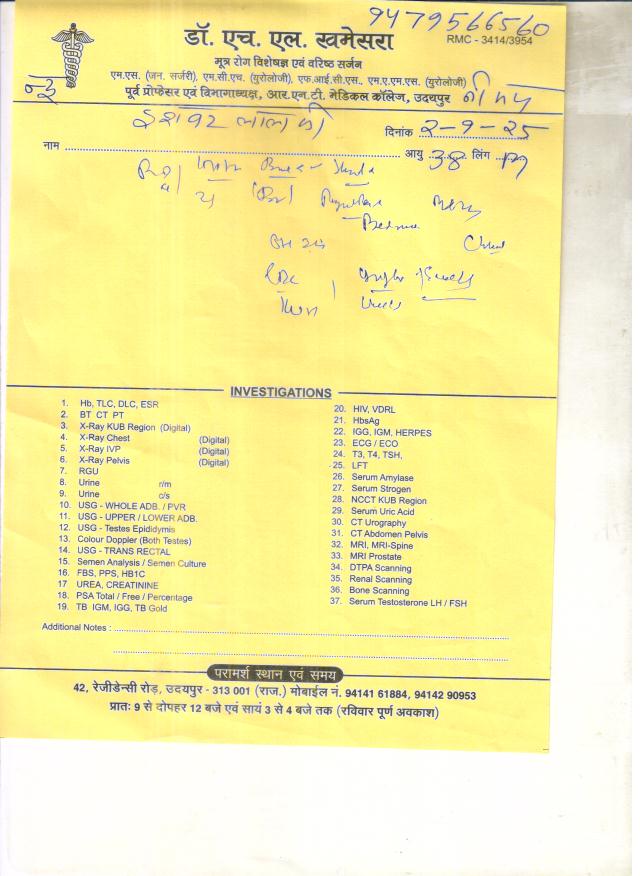 9479566560
डॉ. एच. एल. खमेसरा
RMC - 3414/3954
मूत्र रोग विशेषज्ञ एवं वरिष्ठ सर्जन
एम.एस. (जन. सर्जरी), एम.सी.एच. (यूरोलोजी), एफ.आई.सी.एस., एम.ए.एम.एस. (यूरोलोजी)
पूर्व प्रोफेसर एवं विभागाध्यक्ष, आर.एन.टी. मेडिकल कॉलेज, उदयपुर
दिनांक 2-9-25
नाम
आयु 38 लिंग M
INVESTIGATIONS
1. Hb, TLC, DLC, ESR
2. BT CT PT
3. X-Ray KUB Region (Digital)
4. X-Ray Chest (Digital)
5. X-Ray IVP (Digital)
6. X-Ray Pelvis (Digital)
7. RGU
8. Urine r/m
9. Urine c/s
10. USG - WHOLE ADB. / PVR
11. USG - UPPER / LOWER ADB.
12. USG - Testes Epididymis
13. Colour Doppler (Both Testes)
14. USG - TRANS RECTAL
15. Semen Analysis / Semen Culture
16. FBS, PPS, HB1C
17 UREA, CREATININE
18. PSA Total / Free / Percentage
19. TB IGM, IGG, TB Gold
20. HIV, VDRL
21. HbsAg
22. IGG, IGM, HERPES
23. ECG / ECO
24. T3, T4, TSH,
25. LFT
26. Serum Amylase
27. Serum Strogen
28. NCCT KUB Region
29. Serum Uric Acid
30. CT Urography
31. CT Abdomen Pelvis
32. MRI, MRI-Spine
33. MRI Prostate
34. DTPA Scanning
35. Renal Scanning
36. Bone Scanning
37. Serum Testosterone LH / FSH
Additional Notes :
परामर्श स्थान एवं समय
42, रेजीडेन्सी रोड़, उदयपुर - 313 001 (राज.) मोबाईल नं. 94141 61884, 94142 90953
प्रातः 9 से दोपहर 12 बजे एवं सायं 3 से 4 बजे तक (रविवार पूर्ण अवकाश)